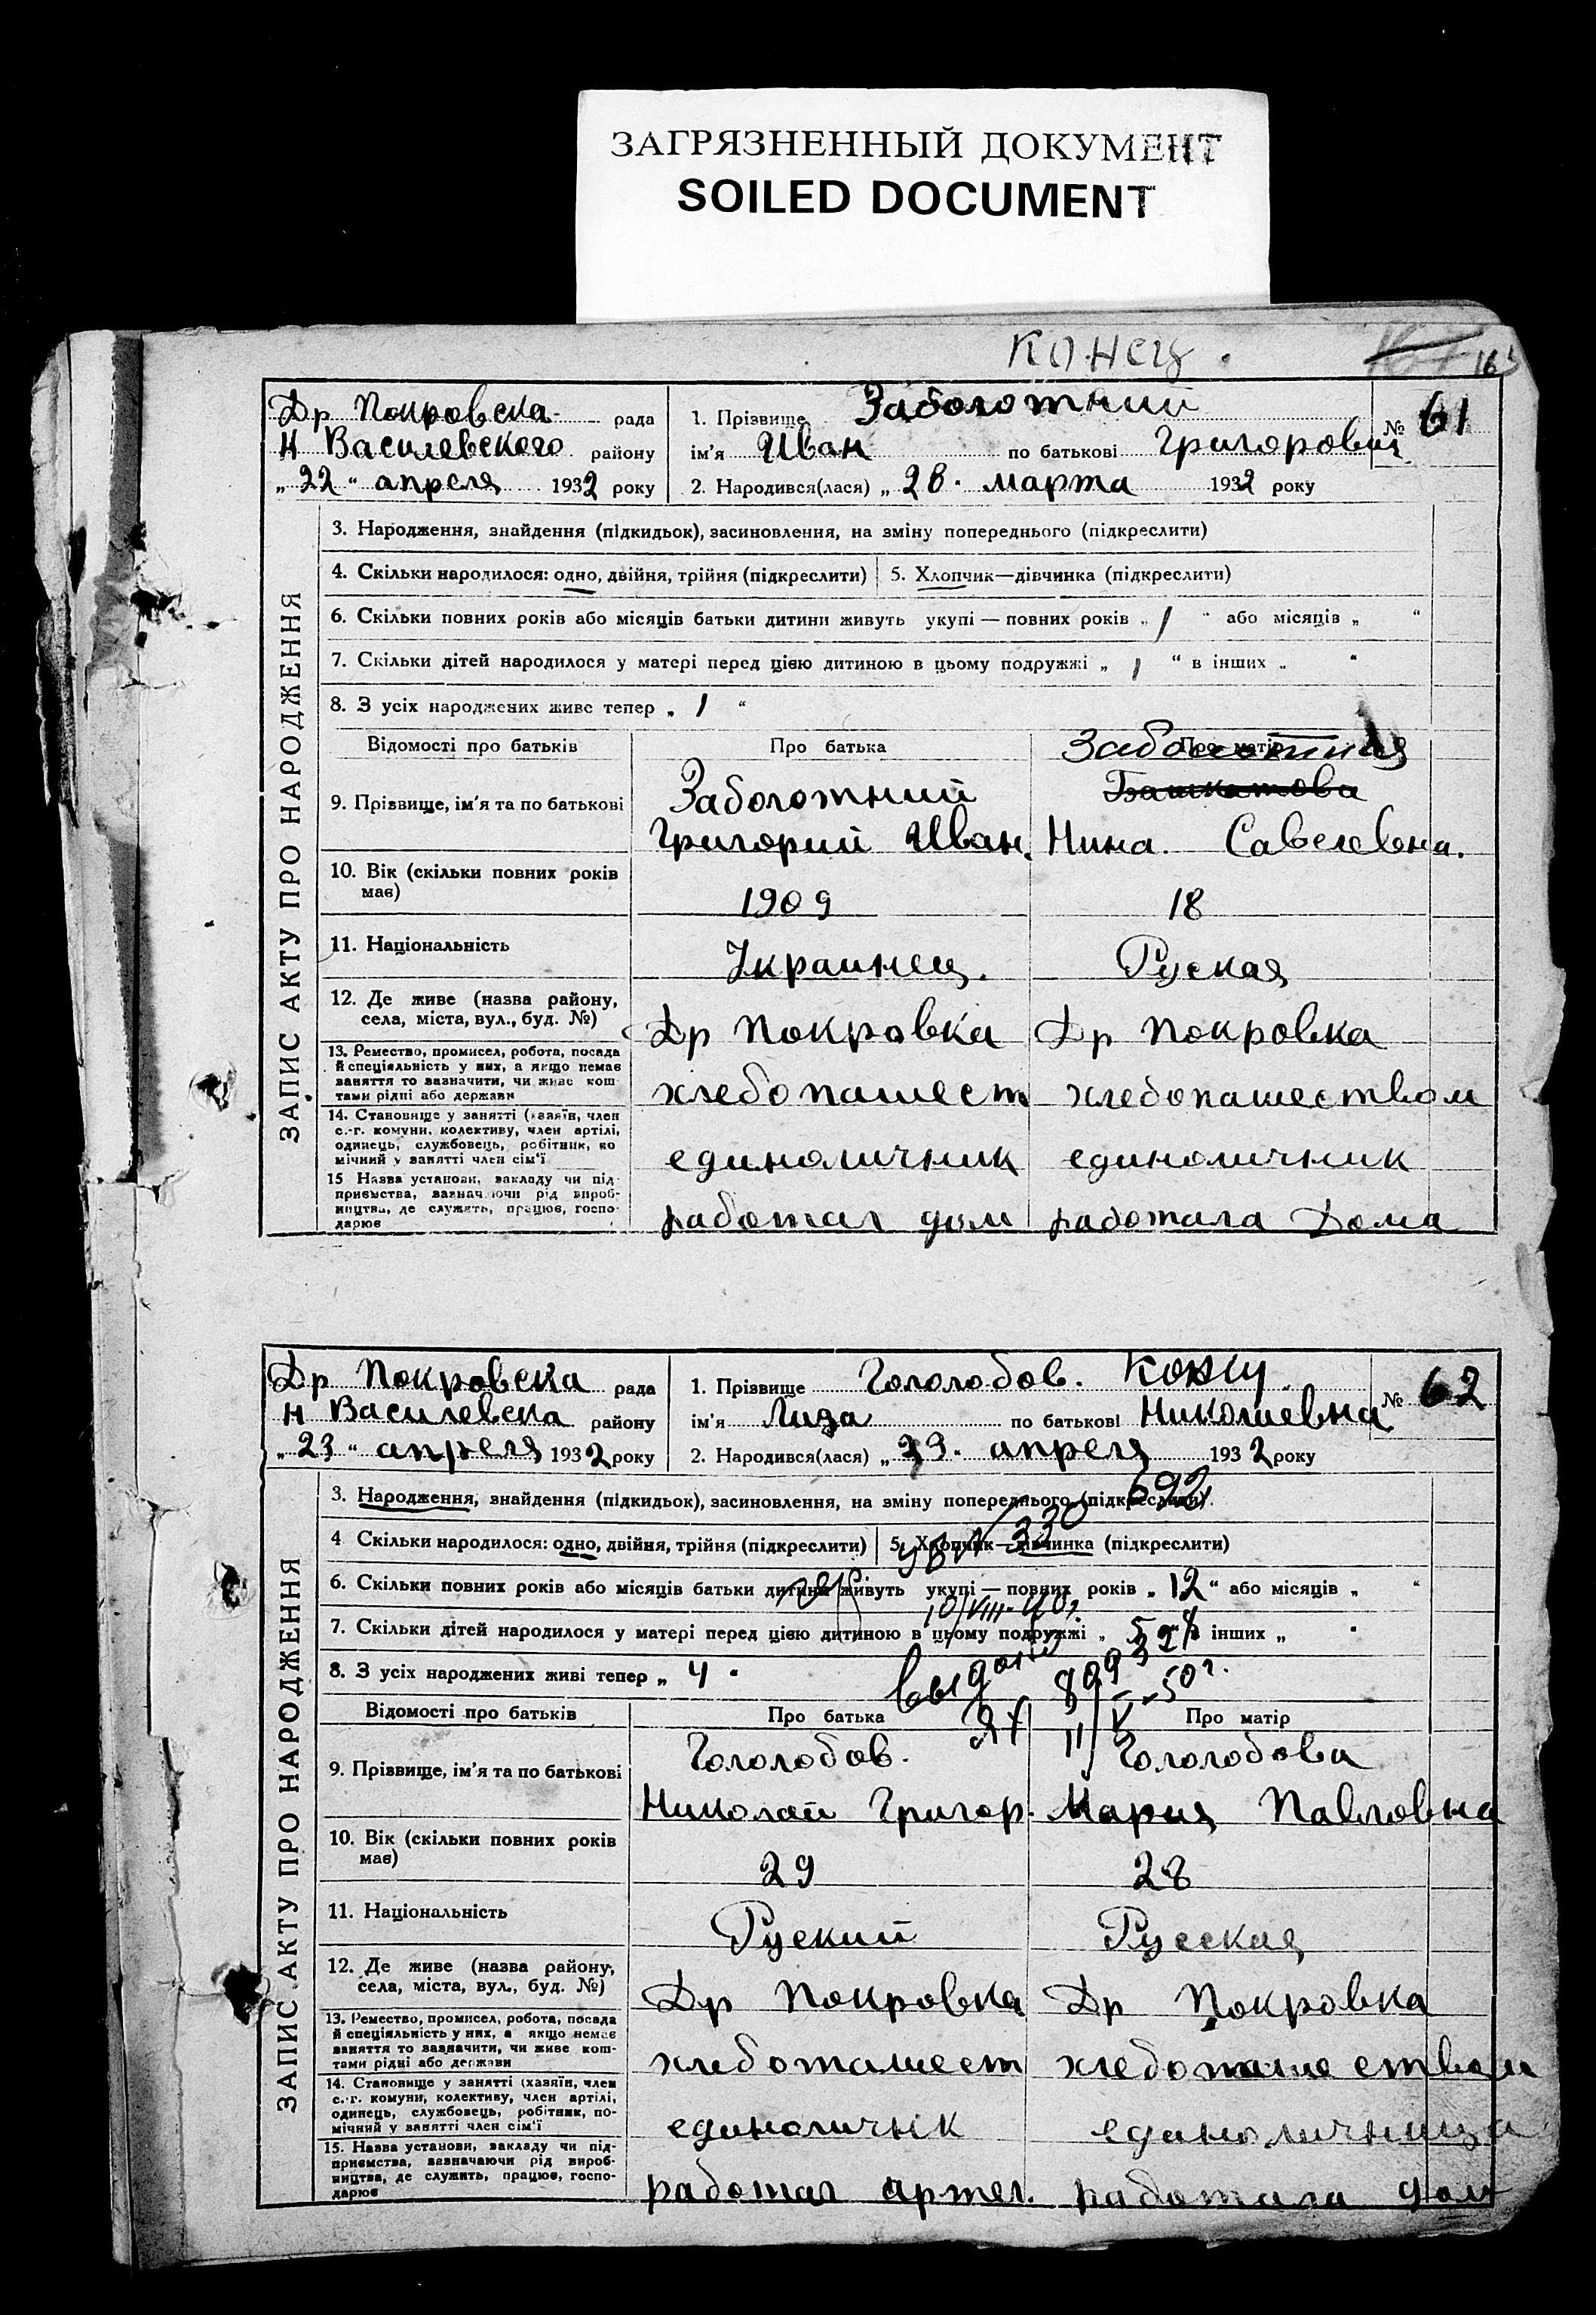 ЗАГРЯЗНЕННЫЙ ДОКУМЕНТ
SOILED DOCUMENT
Конец.
ЗАПИС АКТУ ПРО НАРОДЖЕННЯ
Др Покровска рада
Н Василевского району
„22“ апреля 1932 року
1. Прізвище Заболотний
№ 61
ім'я Иван по батькові Григорович
2. Народився(лася) „28. марта 1932 року
3. Народження, знайдення (підкидьок), засиновлення, на зміну попереднього (підкреслити)
4. Скільки народилося: одно, двійня, трійня (підкреслити) 5. Хлопчик—дівчинка (підкреслити)
6. Скільки повних років або місяців батьки дитини живуть укупі — повних років „ 1 “ або місяців „ “
7. Скільки дітей народилося у матері перед цією дитиною в цьому подружжі „ 1 “ в інших „ “
8. З усіх народжених живе тепер „ 1 “
Відомості про батьків Про батька Про матір
Заболотная
9. Прізвище, ім'я та по батькові Заболотний Башкатова
Григорий Иван. Нина. Савелевна.
10. Вік (скільки повних років має) 1909 18
11. Національність Украинец. Руская
12. Де живе (назва району, села, міста, вул., буд. №) Др Покровка Др Покровка
13. Ремество, промисел, робота, посада й спеціяльність у них, а якщо немає заняття то зазначити, чи живе коштами рідні або держави
хлебопашест хлебопашеством
14. Становище у занятті (хазяїн, член с.-г. комуни, колективу, член артілі, одинець, службовець, робітник, помічний у занятті член сім'ї
единоличник единоличник
15 Назва установи, закладу чи підприємства, зазначаючи рід виробництва, де служить, працює, господарює
работал дом работала Дома
ЗАПИС АКТУ ПРО НАРОДЖЕННЯ
Др Покровска рада
Н Василевска району
„23“ апреля 1932 року
1. Прізвище Гололобов.
№ 62
ім'я Лида по батькові Николаевна
2. Народився(лася) „23. апреля 1932 року
3. Народження, знайдення (підкидьок), засиновлення, на зміну попереднього (підкреслити)
692
4 Скільки народилося: одно, двійня, трійня (підкреслити) 5. Хлопчик—дівчинка (підкреслити)
330
6. Скільки повних років або місяців батьки дитини живуть укупі — повних років „ 12 “ або місяців „ “
10/VIII-40г.
7. Скільки дітей народилося у матері перед цією дитиною в цьому подружжі „ 5 “ в інших „ “
8. З усіх народжених живі тепер „ 4 “
11/V-50г.
Відомості про батьків Про батька Про матір
9. Прізвище, ім'я та по батькові Гололобов. Гололобова
Николай Григор. Мария Павловна
10. Вік (скільки повних років має) 29 28
11. Національність Руский Русская
12. Де живе (назва району, села, міста, вул., буд. №) Др Покровка Др Покровка
13. Ремество, промисел, робота, посада й спеціяльність у них, а якщо немає заняття то зазначити, чи живе коштами рідні або держави
хлебопашест хлебопашеством
14. Становище у занятті (хазяїн, член с.-г. комуни, колективу, член артілі, одинець, службовець, робітник, помічний у занятті член сім'ї
единоличнік единоличница
15. Назва установи, закладу чи підприємства, зазначаючи рід виробництва, де служить, працює, господарює
работал артел. работала дом